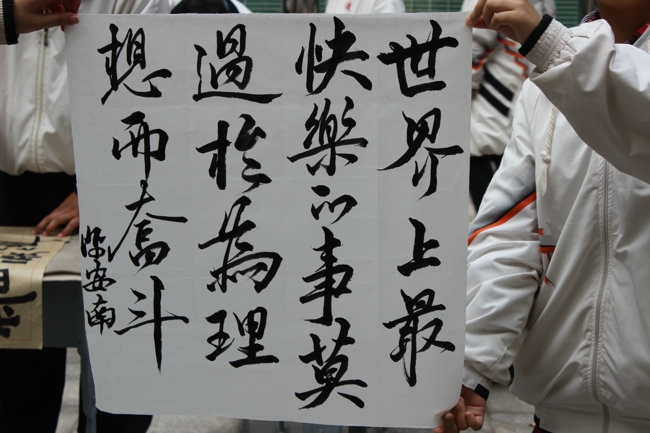 世界上最
快樂的事莫
過於為理
想而奮斗
陈安南